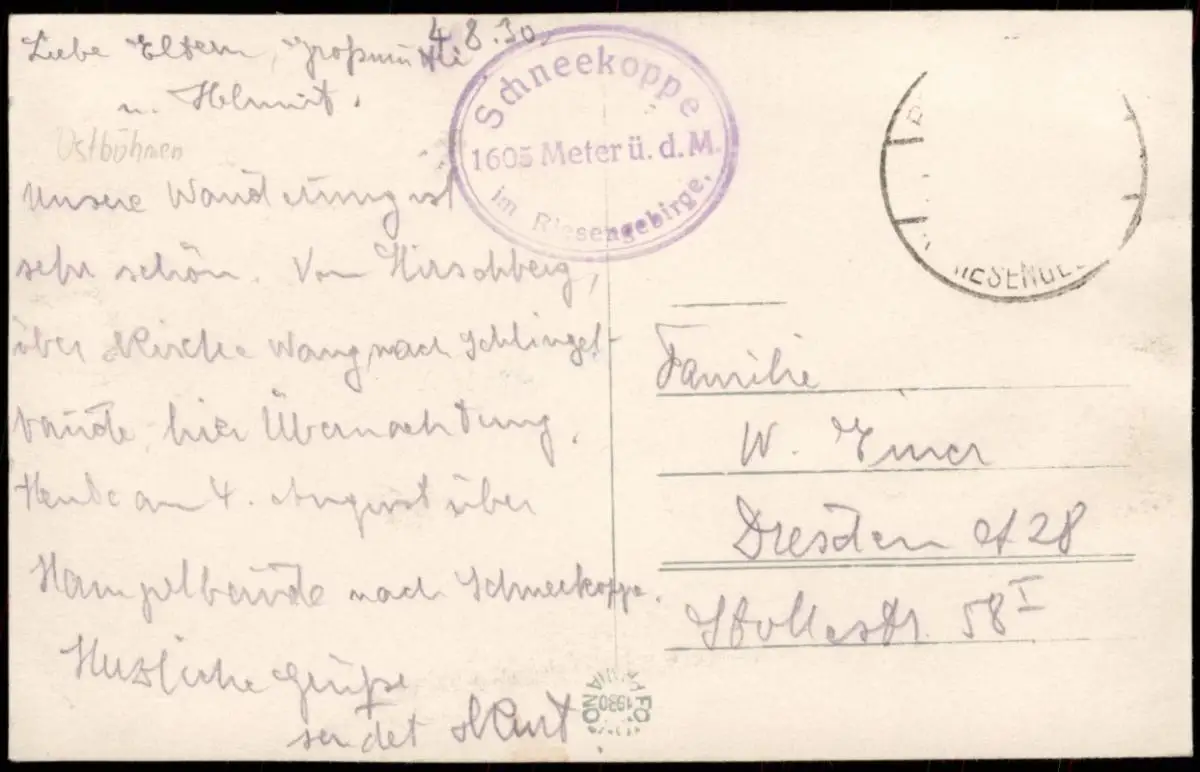 4.8.30.
Liebe Eltern, Großmutti
u. Helmut.
Ostböhmen
Unsere Wanderung ist
sehr schön. Von Hirschberg,
über Kirche Wang nach Schlingel-
baude, hier Übernachtung.
Heute am 4. August über
Hampelbaude nach Schneekoppe.
Herzliche Grüße
sendet Kurt
Schneekoppe
1605 Meter ü. d. M.
im Riesengebirge.
Familie
W.
Dresden A 28
Stollestr. 58 I
1930